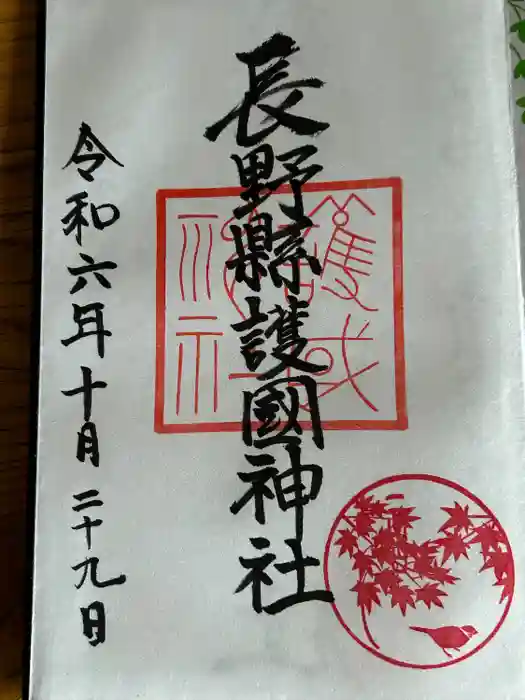 長野縣護國神社
令和六年十月二十九日